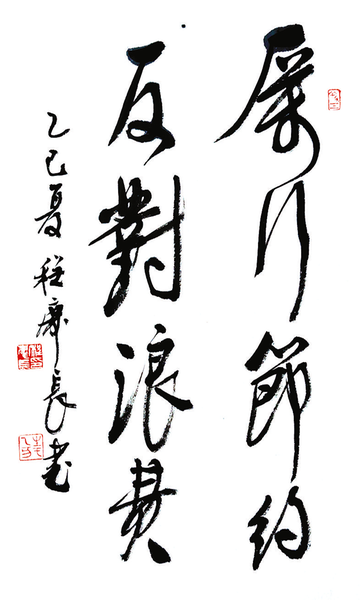 厉行節約
反對浪费
乙巳夏 程庸長书